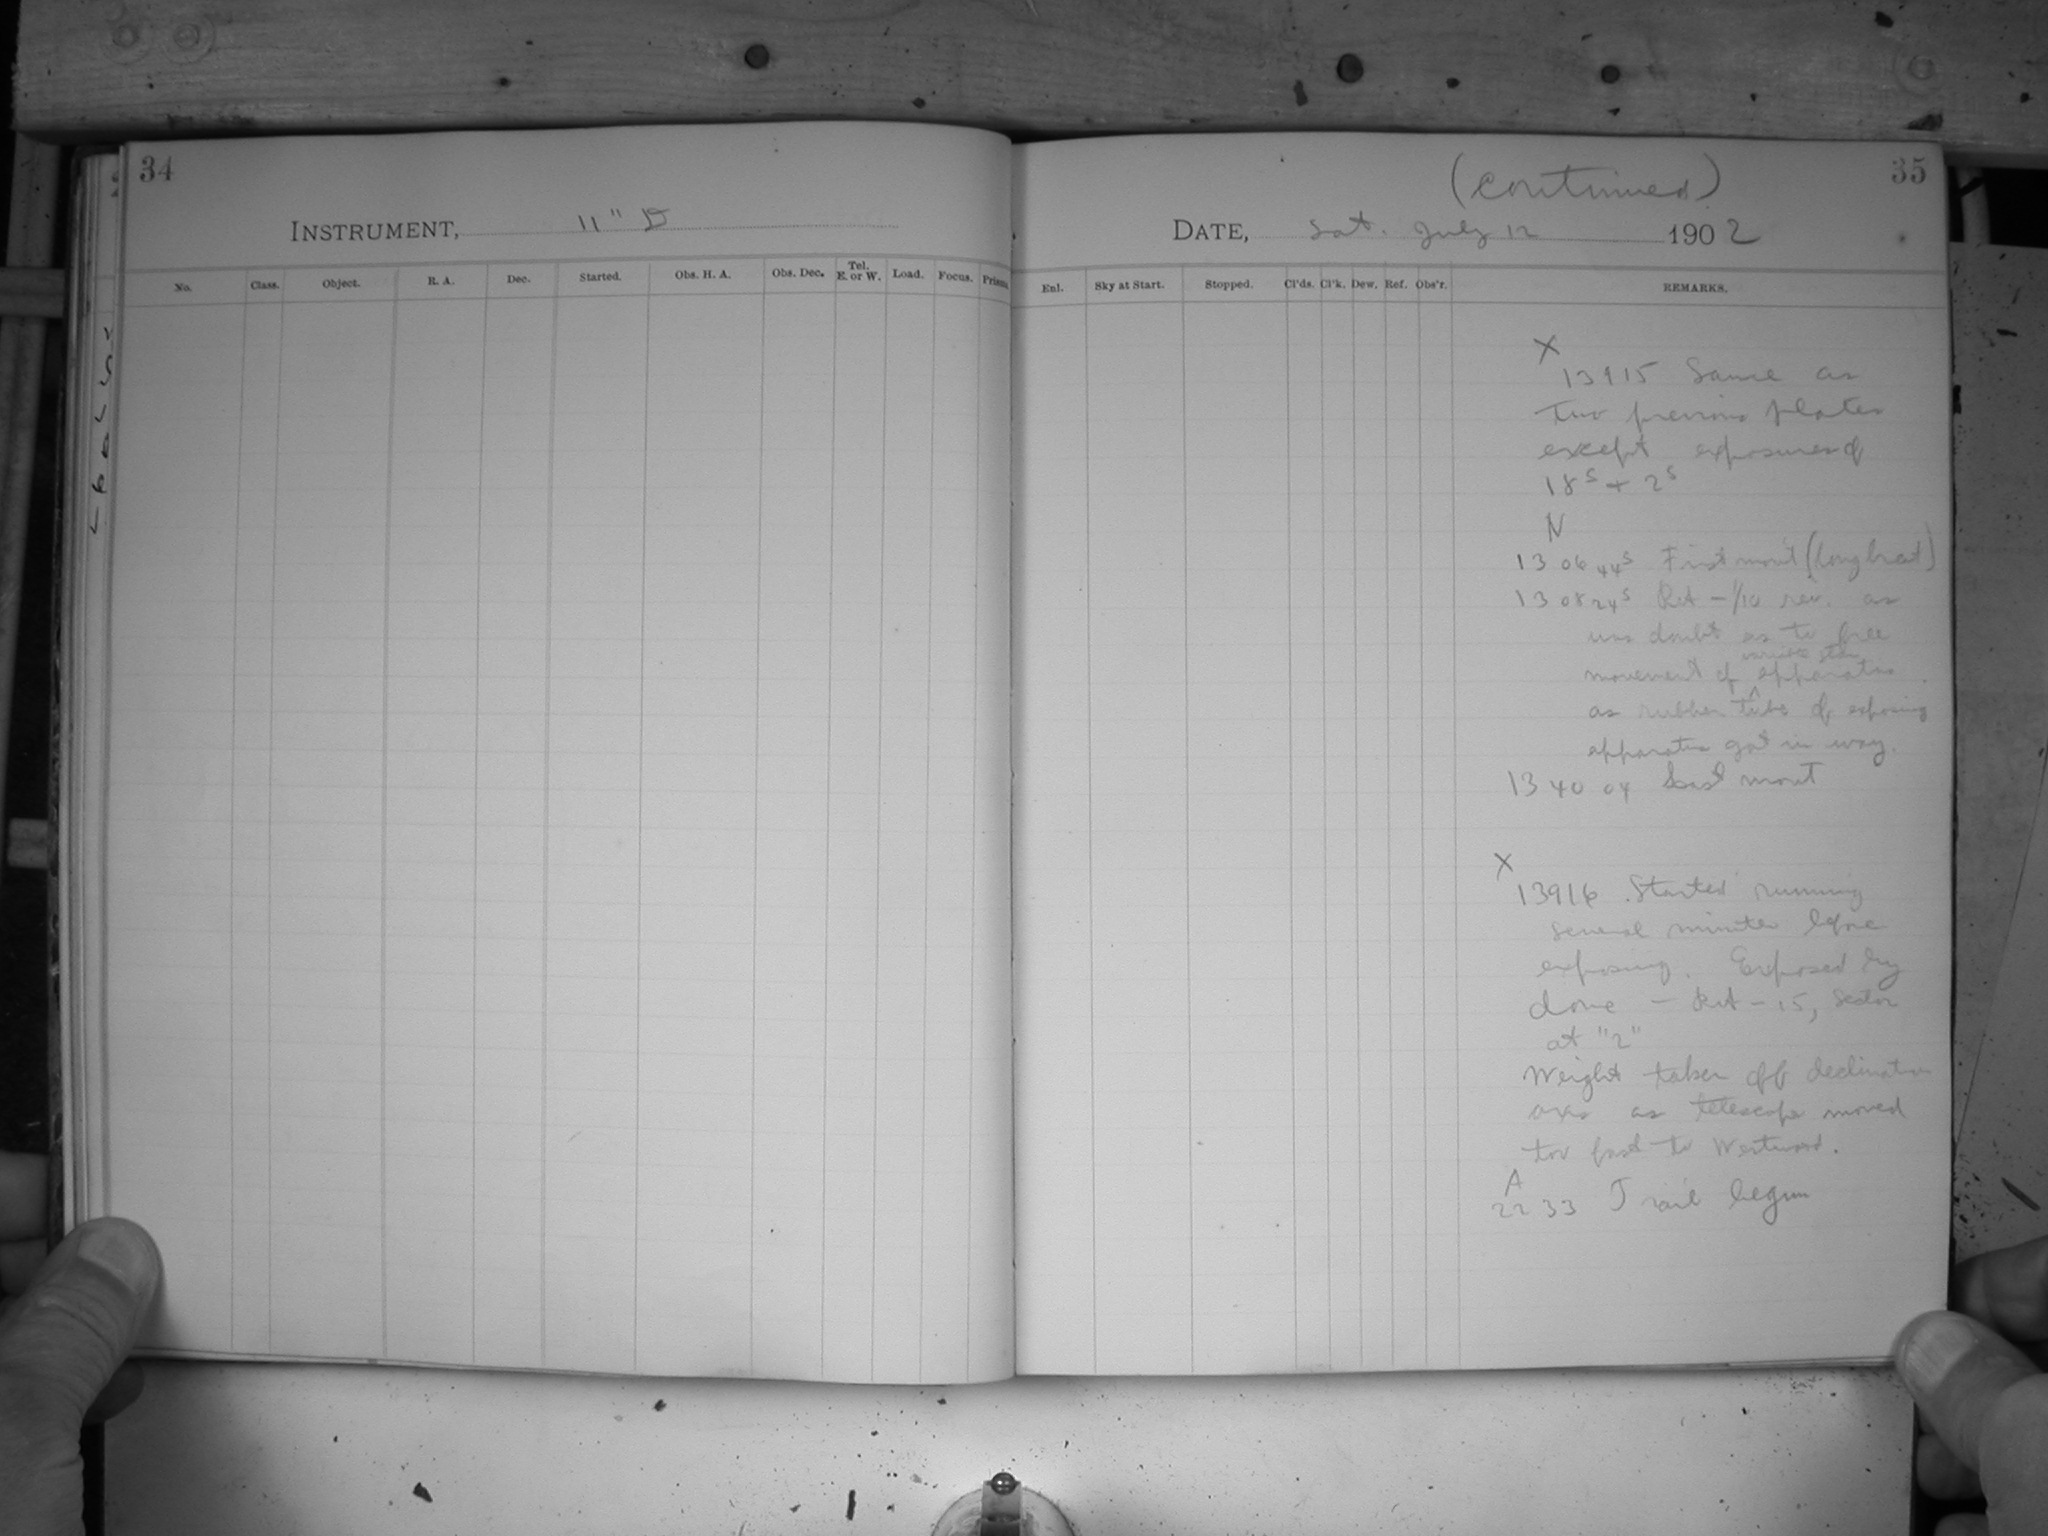 34
INSTRUMENT, 11" D
No. Class. Object. R. A. Dec. Started. Obs. H. A. Obs. Dec. Tel. E. or W. Load. Focus. Prism
(continued)
35
DATE, Sat. July 12 1902
Enl. Sky at Start. Stopped. Cl'ds. Cl'k. Dew. Ref. Obs'r. REMARKS.
X
13915 Same as
two previous plates
except exposures of
18s + 2s
N
13 06 44s First mont (long beat)
13 08 24s Rct - 1/10 rev. as
was doubt as to free
variable star
movement of ^ apparatus
as rubber tube of exposing
apparatus got in way.
13 40 04 Last mont
X
13916 Started running
several minutes before
exposing. Exposed by
dome - Rct - 15, Sector
at "2"
Weight taken off declination
axis as telescope moved
too fast to Westward.
A
22 33 Trail begun